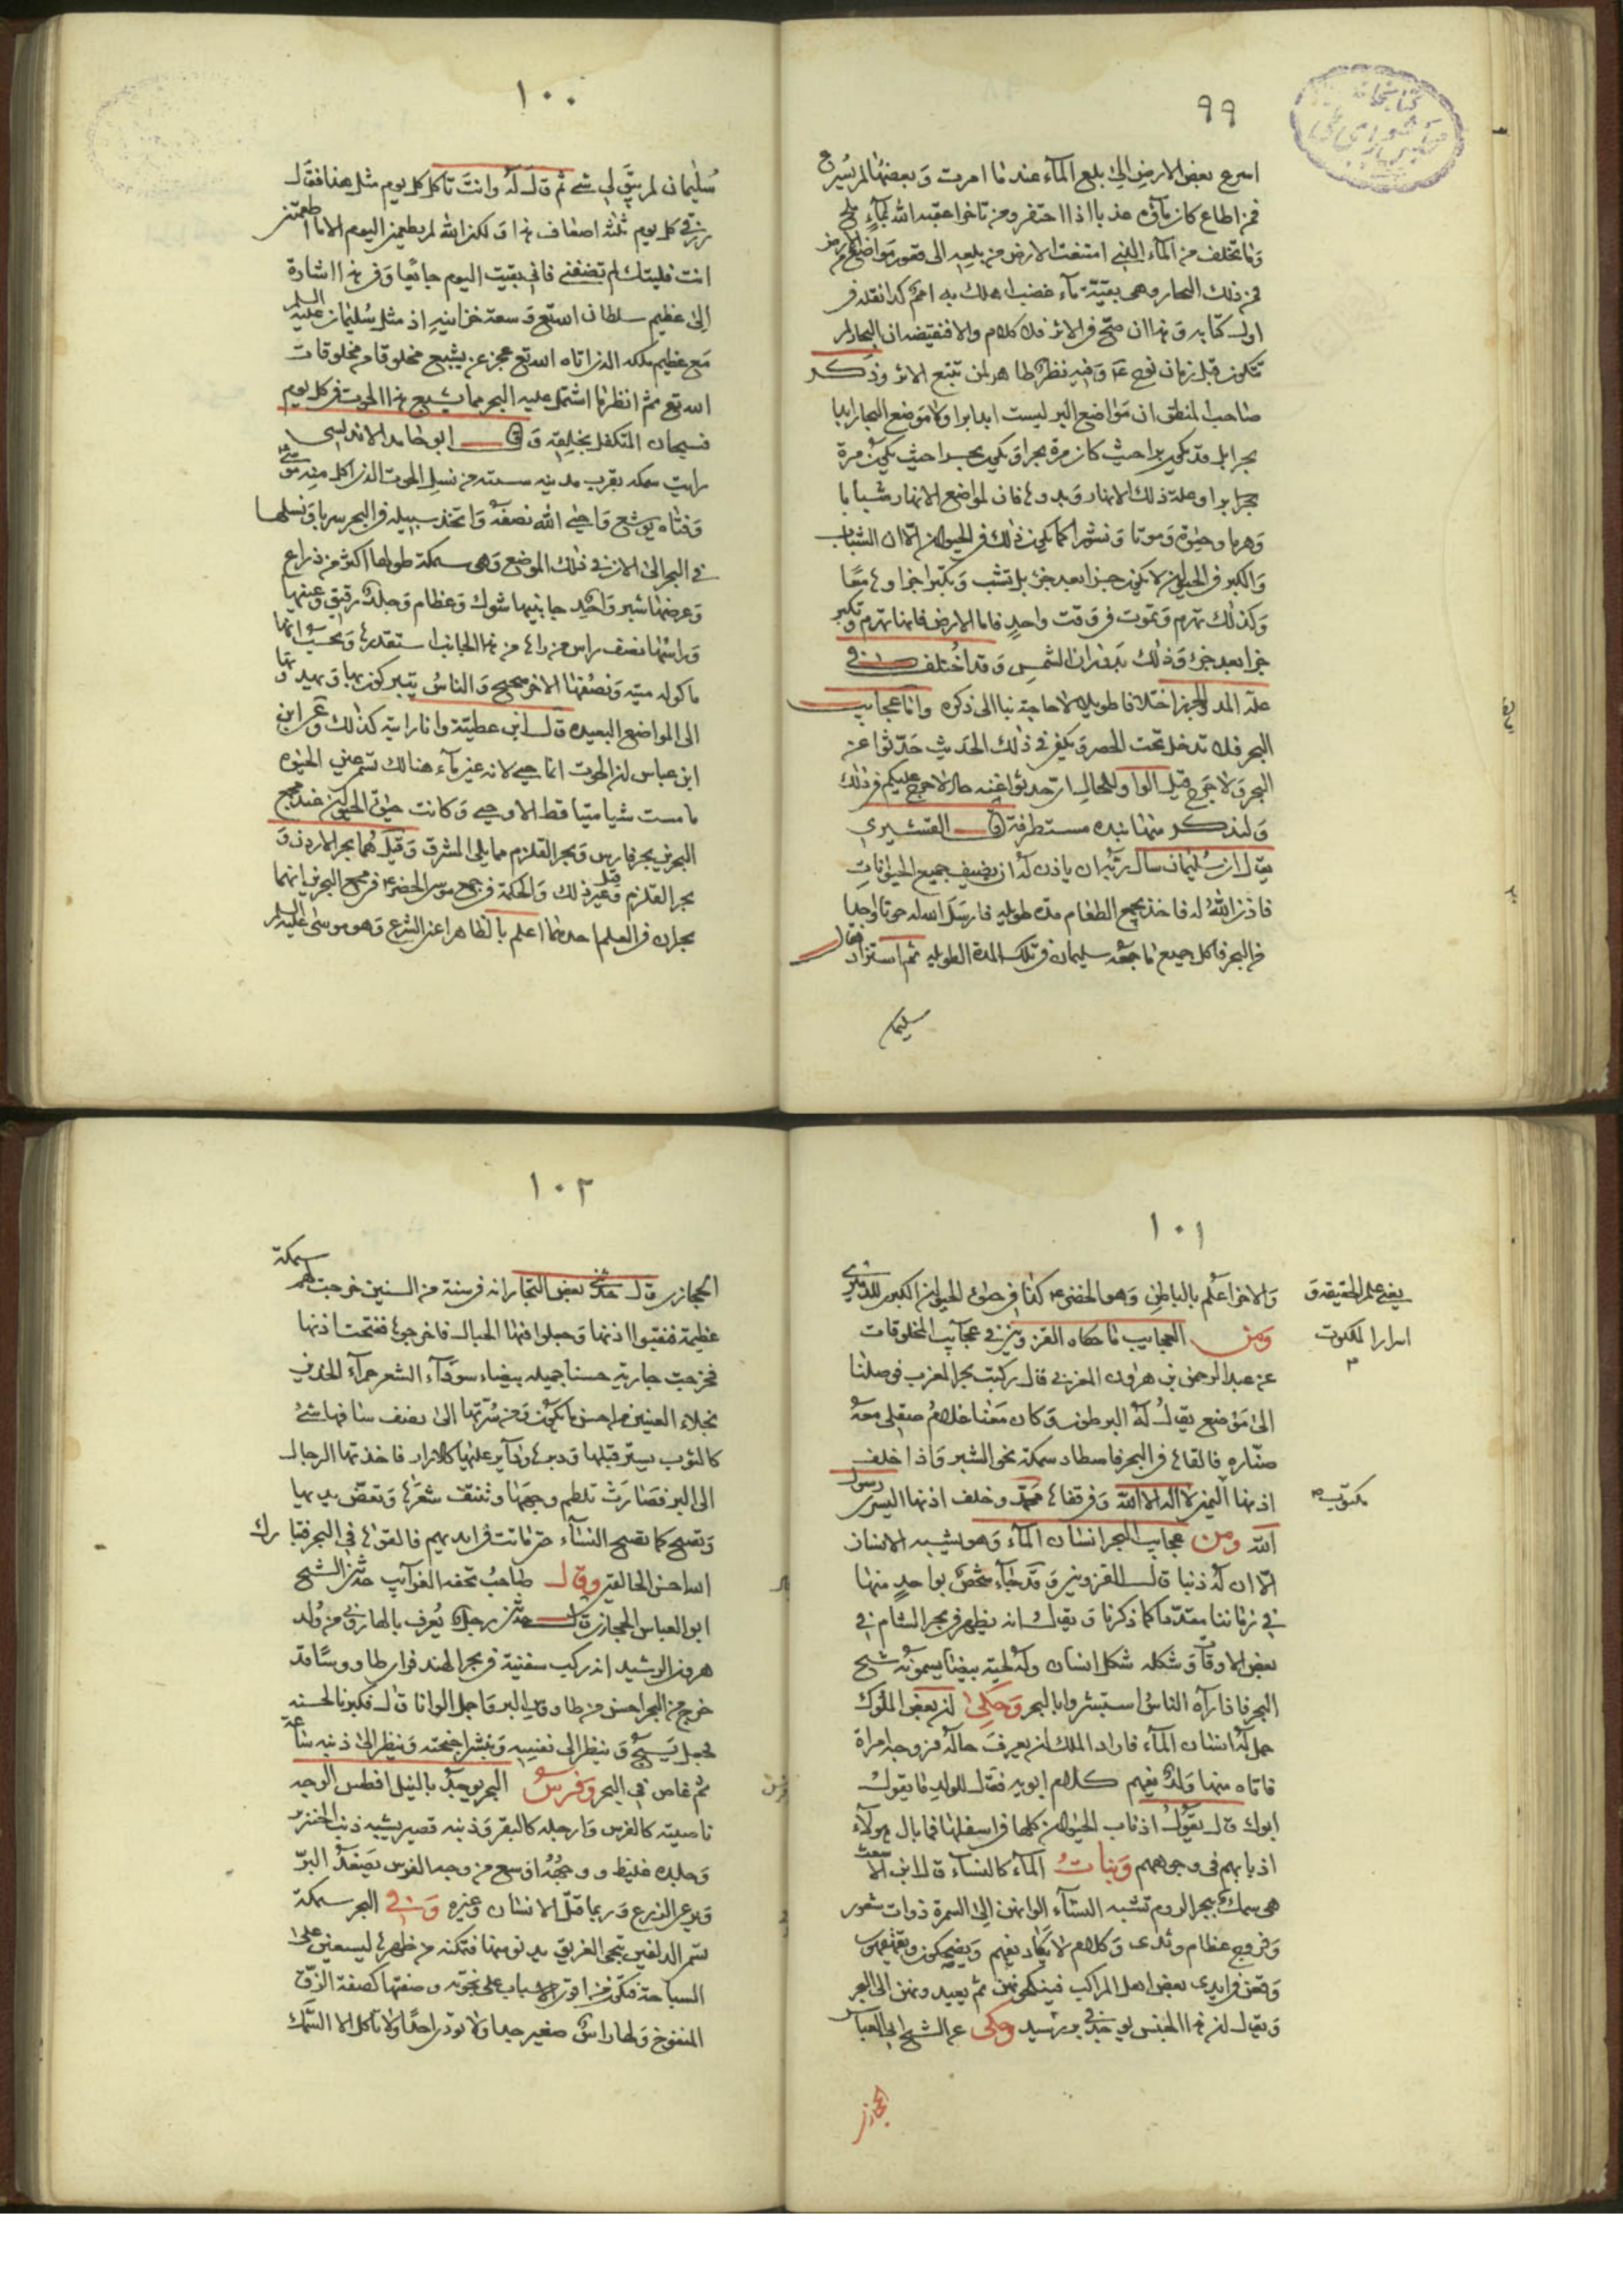 ٩٩
اسرع بعض الارض الى بلع المآء عند ما امرت وَ بعضها لم يُسرع
فمن اطاع كان مآؤه عذبا اذا احتفر ومن تاخر اعقبه الله بمآءٍ ملح
وَما تخلف من المآء الذى امتنعت الارض من بلعه الى قعور مواضع الارض
فمن ذلك البحار وهى بقيّة مآء غضب اهلك به امم كذا نقله فى
اول كتابه وَ هذا ان صحّ فى الاثر فلا كلام والا فنقيضه ان البحار لم
تتكون قبل زمان نوح ع وَ فيه نظر ظاهر لمن تتبع الاثر وذكر
صاحب المنطق ان مَوَاضع البر ليست ابدا برا وَلا مَوضع البحار ابدا
بحرا بل قد يكون برا حيث كان مرة بحرا وَ يكون بحرا حيث يكون مرة
برا وعلة ذلك الانهار وَبدوها فان لمواضع الانهار شبابا
وَهرما وحيٰوة وَموتا وَ نشرا كما يكون ذلك فى الحيوان الّا ان الشباب
وَالكبر فى الحيوان لا يكون جزا بعد جزء بل تشب وَ تكبر اجزاوها مَعًا
وَكذلك تهرم وَتموت فى وَقت واحدٍ فاما الارض فانها تهرم وَتكبر
جزا بعد جزء وَذٰلك بدوران الشمس وَ قد اختلف فى
علّة المد والجزر اختلافا طويلا لا حاجة بنا الى ذكره وَامّا عجايب
البحر فلا تدخل تحت الحصر وَ يكفى فى ذلك الحَديث حَدّثوا عن
البحر وَلا حَرج قيل الواو للحال اى حدثوا عنه حال لا حرج عليكم فى ذلك
وَلنذكر منها نبذه مستطرفة قال القشيرى
يقال ان سُليمان سال ربّه ان ياذن لهُ ان يضيف جميع الحيوٰانات
فاذن اللّهُ له فاخذ بجمع الطعام مدة طويلة فارسَل الله له حوتا واحدا
من البحر فاكل جميع ما جمعه سليمان فى تلك المدة الطويله ثم استزاد فقال
سليمان
١٠٠
سُليمان لم يبق لى شى ثم قال لهُ وانتَ تاكل كل يوم مثل هذا فقال
رزقى كل يوم ثلثة اضعاف هذا وَ لكن الله لم يطعمنى اليوم الا ما اطعمتنى
انت فليتك لم تضفنى فانى بقيت اليوم جائعا وَفى هذا اشارة
الى عظيم سلطان الله تع وَ سعة خزاينهِ اذ مثل سُليمان عليه السلم
مَع عظيم ملكه الذى اتاه الله تع عجز عن يشبع مخلوقا من مخلوقات
الله تع ثم انظر ما اشتمل عليه البحر مما يشبع هذا الحوت فى كل يوم
فسبحان المتكفل بخلقه وَ قال ابو حامد الاندلسى
رايت سمكه بقرب مدينه سبته من نسل الحوت الذى اكل منه موسى
وَفتاه يوشع وَاحيى الله نصفه وَاتخذ سبيله فى البحر سربا وَنسلها
فى البحر الى الان فى ذلك الموضع وَهى سمكة طولها اكثر من ذراع
وَعرضها شبر وَاحد جانبيها شوك وَعظام وَجلد رقيق وَعينها
وَراسُها نصف راس من راها من هذا الجانب استقذرها وَيحسب انها
ماكوله ميته وَنصفها الاخر صحيح وَالناسُ يتبركون بها وَيهدونها
الى المواضع البعيده قال ابن عطيّة وانا رايته كذلك وَعن ابن
ابن عباس ان الحوت انما حيى لانه عين مآء هنالك تسمى عين الحيٰوة
ما مست شيا ميتا قط الا وحيى وَكانت حيوة الحيوان عند مجمع
البحرين بحر فارس وَبحر القلزم مما يلى المشرق وَقيل هُما بحر الاردن وَ
بحر القلزم وَقيل غير ذلك وَالحكمة فى جمع موسى الخضر ع فى مجمع البحرين انهما
بحران فى العلم احدهما اعلم بالظاهر اعنى الشرع وَهو موسى عليه السلم
١٠١
وَالاخر اعلم بالباطن وَهو الخضر ع كذا فى حيوٰة الحيوان الكبرى للدميرى
وَمن العجايب ما حكاه القزوينى فى عجآيب المخلوقات
عن عبد الرحمن بن هرون المغربى قال ركبت بحر المغرب فوصلنا
الى مَوضع يقالُ لهُ البرطون وَكان مَعَنا غلامُ صقلى معه
صنّاره فالقاها فى البحر فاصطاد سمكة نحو الشبر وَاذا خلف
اذنها اليمنى لا اله الا الله وَفى قفاها محمّد وخلف اذنها اليسرى رسول
الله ومن عجايب البحر انسان المآء وَهو يشبه الانسان
الّا ان لهُ ذنبا قال القزوينى وَقد جآء شخصٌ بواحدٍ منها
فى زماننا مقدّدا كما ذكرنا وَ يقال انه يظهر فى بحر الشام فى
بعض الاوقات وَشكله شكل انسان وله لحية بيضا يسمونه شيخ
البحر فاذا رآه الناسُ استبشروا بالبحر وَحكى ان بعض الملوك
حمل لهُ انسان المآء فاراد الملك ان يعرفَ حالهُ فزوجه امراة
فاتاه منها وَلدٌ يفهم كلام ابويه فقال للولد ما يقولُ
ابوك قال يقول اذناب الحيوان كلها فى اسفلها فما بال هولآء
اذنابهم فى وجوههم وَبناتُ المآء كالنسآء قال ابن الاشعث
هى سمك ببحر الروم تشبه النسآء الوانهن الى السمرة ذوات شعور
وَفروج عظام وثدى وَكلام لا يكاد يفهم وَيضحكون ويقهقهون
وَ يقعن فى ايدى بعض اهل المراكب فينكحونهن ثم يعيدونهن الى البحر
وَيقال ان هذا الجنس يوجد فى بر رشيد وَحكى عن الشيخ ابى العباس
الحجازى
يعنى علم الحقيقة وَ
اسرار الملكوت
م
مكتوب ص
١٠٢
الحجازى قال حدثنى بعض التجار انه فى سنة من السنين خرجت لهم سمكة
عظيمة فنقبوا اذنها وَجعلوا فيها الحبال فاخرجوها ففتحت اذنها
فخرجت جارية حسنا جميله بيضاء سودآء الشعر حمرآء الخدين
نجلاء العينين من احسن ما يكون وَمن سُرّتها الى نصف ساقها شئ
كالثوب يستر قبلها وَدبرها دآير عليها كالازار فاخذتها الرجال
الى البر فصَارتْ تلطم وجهها وتنتف شعَرها وَتعضّ يديها
وَتصيح كما تصيح النسآء حتى ماتت فى ايديهم فالقوها فى البحر فتبارك
الله احسن الخالقين وَقال صاحبُ تحفه الغرآيب حدثنى الشيخ
ابو العباس الحجازى قال حدثنى رجل يُعرف بالهارونى من وُلد
هرون الرشيد انه ركب سفينة فى بحر الهند فراى طاووسًا قد
خرج من البحر احسن من طاووس البر وَاجمل الوانا قال فكبرنا لحسنه
فجعل يَسبح وَ ينظر الى نفسه وَينشر اجنحته وَينظر الى ذنبه ساعة
ثم غاص فى البحر وَفرسُ البحر يوجدُ بالنيل افطس الوجه
ناصيته كالفرس وَارجله كالبقر وَذنبه قصير يشبه ذنب الخنزير
وَجلده غليظ و وجههُ اوَسع من وجه الفرس يَصعدُ البرّ
وَيرعى الزرع وَربما قتل الانسان وَغيره وَفى البحر سمكة
تسمى الدلفين تنجى الغريق يدنو منها فتمكنه من ظهرها ليستعين على
السباحة فتكون من اقوى الاسباب على نجوته وصفتها كصفة الزقّ
المنفوخ وَلها راسٌ صغير جدا ولا توذى احدًا وَلا تاكل الا السّمك